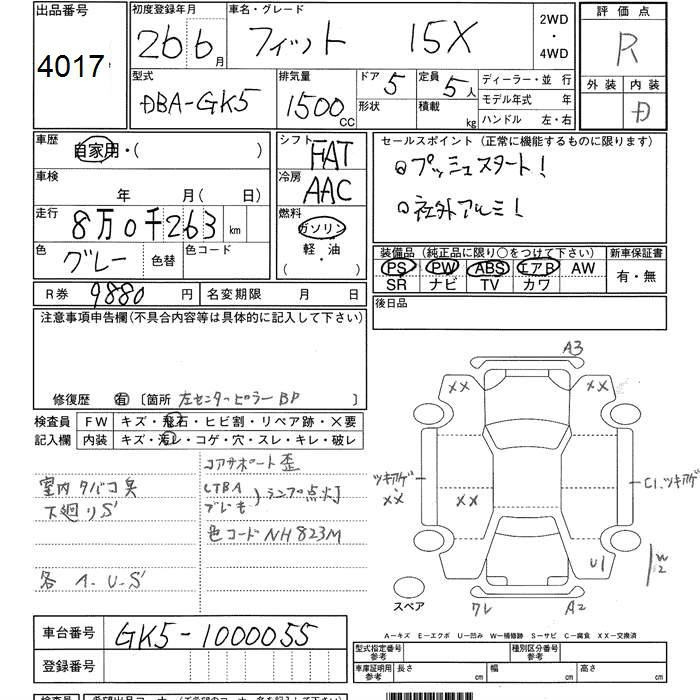 出品番号 4017
初度登録年月 26 6月
車名・グレード フィット 15X
2WD・4WD
評価点 R
型式 DBA-GK5
排気量 1500 CC
ドア 5 形状
定員 5人 積載 kg
ディーラー・並 行
モデル年式 年
ハンドル 左・右
外装 内装 D
車歴 自家用・( )
シフト FAT
セールスポイント (正常に機能するものに限ります)
プッシュスタート!
社外アルミ!
車検 年 月( 日)
冷房 AAC
走行 8万0千263 km
燃料 ガソリン 軽・油 ( ・ )
色 グレー 色替 色コード
装備品 (純正品に限り○をつけて下さい) 新車保証書
PS PW ABS エアB AW 有・無
SR ナビ TV カワ
R券 9880 円 名変期限 月 日
後日品
注意事項申告欄(不具合内容等は具体的に記入して下さい)
修復歴 有 〔箇所 左センターピラー BP 〕
検査員 FW キズ・飛石・ヒビ割・リペア跡・×要
記入欄 内装 キズ・汚レ・コゲ・穴・スレ・キレ・破レ
コアサポート歪
室内タバコ臭
LTBA
ブレーキ
ランプ点灯
下廻りS
色コードNH823M
各 A・U・S
A3
XX XX
ツキアゲ XX
XX
C1、ツキアゲ
U1
W2
スペア
クレ A2
A-キズ E-エクボ U-凹み W-補修跡 S-サビ C-腐食 XX-交換済
車台番号 GK5-1000055
登録番号
型式指定番号 参考
種別区分番号 参考
車庫証明用 参考 長さ cm 幅 cm 高さ cm